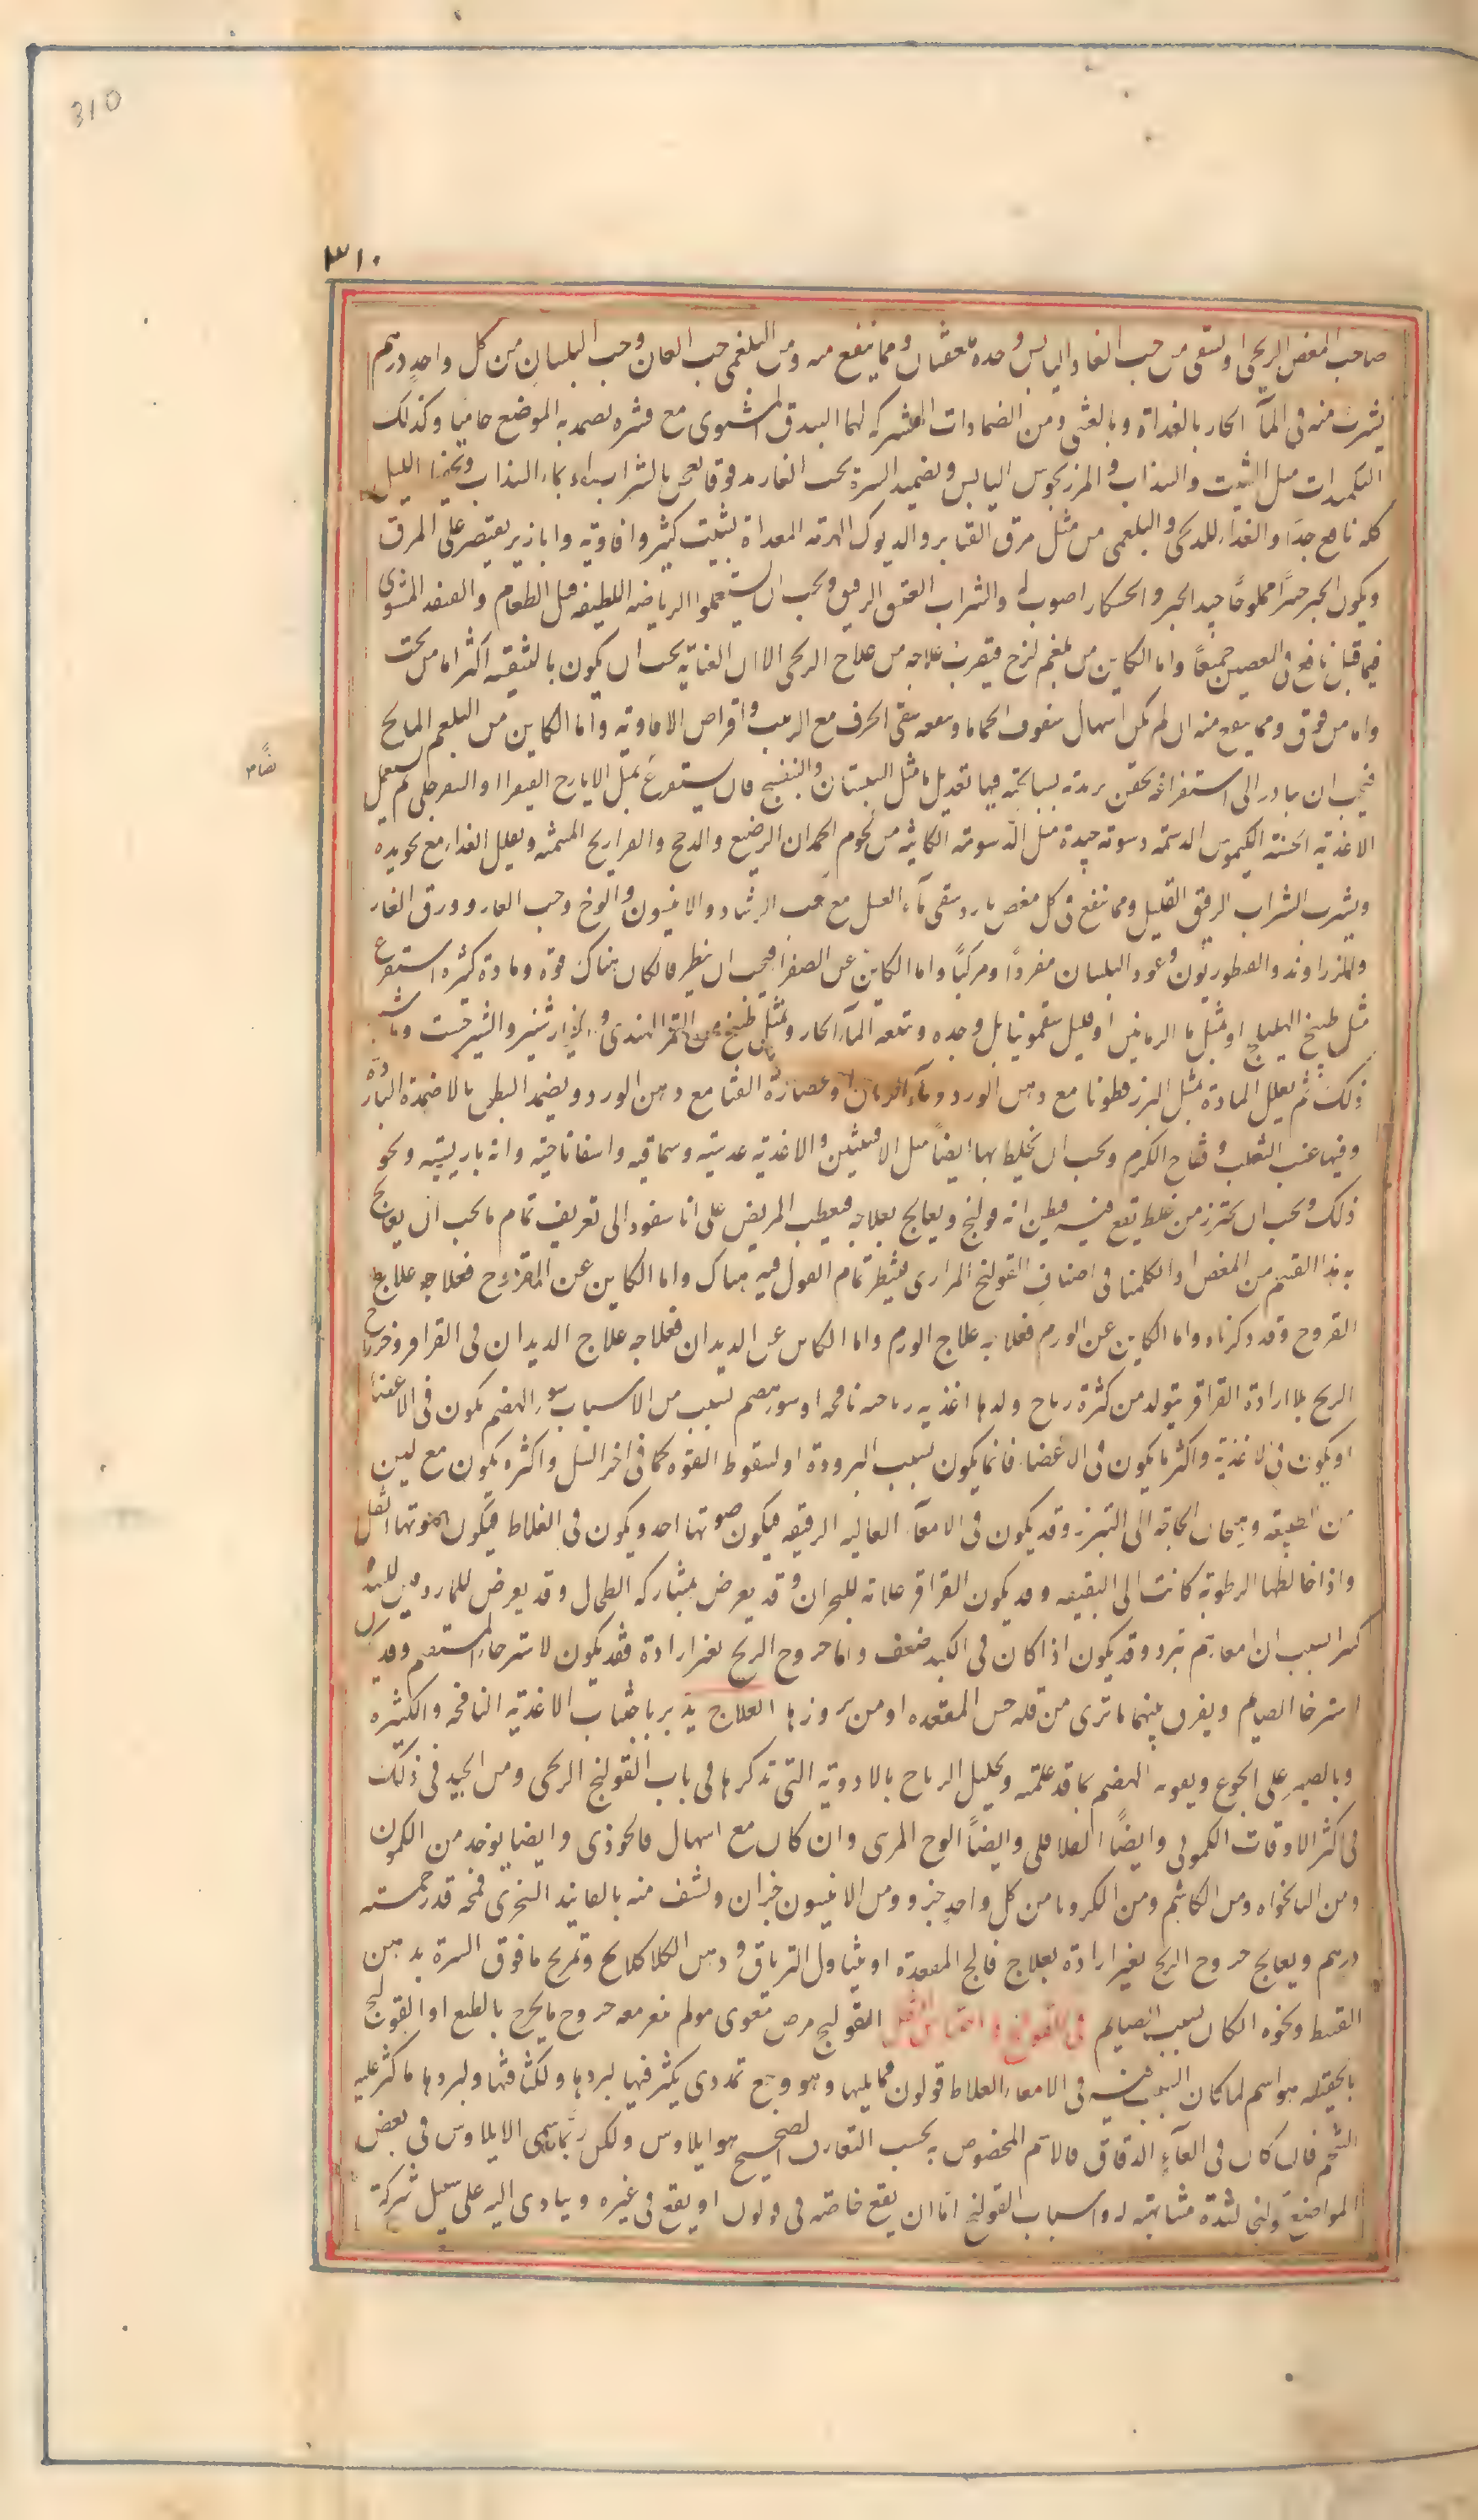 310
٣١٠
صاحب المغص الريحى او يسقى من حب الغار اليابس وحده ملعقتان ومما ينفع منه ومن البلغمى حب البان وحب البلسان من كل واحد درهم
يشرب منه فى المآ الحار بالغداة وبالعشى ومن الضمادات المشتركة لهما البندق المشوى مع قشره يضمد به الموضع حاميا وكذلك
التكميدات مثل الشبت والسذاب والمرزنجوش اليابس وتضميد السرة بحب الغار مدقوقا يعجن بالشراب او بماء السذاب الليل
كله نافع جدا والغذاء للريحى والبلغمى من مثل مرق القنابر والديوك الهرمة المغداة بشبت كثير وافاويه وابازير يقتصر على المرق
ويكون الخبز خميرا مملوحا جيد الخبز والخشكار اصوب له والشراب العتيق الرقيق ويجب ان يستعملوا الرياضه اللطيفه قبل الطعام والقنفذ المشوى
فيما قيل نافع فى المغصين جميعا واما الكاين من بلغم لزج فيقرب علاجه من علاج الريحى الا ان العناية يجب ان يكون بالتنقيه اكثر اما من تحت
واما من فوق ومما ينفع منه ان لم يكن اسهال سفوف الحماما وينفعه سقى الحرف مع الزبيب واقراص الافاويه واما الكاين من البلغم المالح
فيجب ان يبادر الى استفراغه بحقن تربدية بسبايجية فيها تعديل ما مثل السبستان والبنفسج فان يستفرغ بمثل الايارج الفيقرا او السفرجلى ثم يستعمل
الاغذيه الحسنة الكيموس الدسمه دسومة جيدة مثل الدسومة الكاينه من لحوم الحملان الرضيع والدجاج والفراريج المسمنه ويقلل الغذاء مع تجويده
ويشرب الشراب الرقيق القليل ومما ينفع فى كل مغص بارد سقى مآء العسل مع حب الرشاد والانيسون والوج وحب الغار وورق الغار
والزراوند والقنطوريون وعود البلسان مفردا ومركبا واما الكاين عن الصفرا فيجب ان ينظر فان كان هناك قوة ومادة كثيره استفرغ
مثل طبيخ الهليلج او بمثل ما الرمانين او قليل سقمونيا بل وحده ويتبعه المآ الحار وبمثل طبيخ من التمر الهندى والخيارشنبر والشيرخشت وما اشبه
ذلك ثم يعدل المادة بمثل البزر قطونا مع دهن الورد ومآء الرمان وعصارة القثا مع دهن الورد ويضمد البطن بالاضمدة الباردة
وفيها عنب الثعلب وفقاح الكرم ويجب ان يخلط بها ايضا مثل الافسنتين والاغذيه عدسيه وسماقيه واسفاناخيه وانبارباريسيه ونحو
ذلك ويجب ان يحترز من غلط يقع فيه فيظن انه قولنج ويعالج بعلاجه فيعطب المريض على انا سنعود الى تعريف تمام ما يجب ان يعالج
به هذا القسم من المغص اذا تكلمنا فى اصناف القولنج المرارى فينتظر تمام القول فيه هناك واما الكاين عن القروح فعلاجه علاج
القروح وقد ذكرناه واما الكاين عن الورم فعلاجه علاج الورم واما الكاين عن الديدان فعلاجه علاج الديدان فى القراقر وخروج
الريح بلا ارادة القراقر يتولد من كثرة رياح ولدها اغذيه رياحيه نافخه او سوء هضم بسبب من الاسباب سوء الهضم يكون فى الاعضا
او يكون فى الاغذيه واكثر ما يكون فى الاعضا فانما يكون بسبب البرودة او لسقوط القوه كما فى اخر السل واكثره يكون مع لين
من الطبيعه وهيجان الحاجة الى التبرز وقد يكون فى الامعآ العاليه الرقيقه فيكون صوتها احد ويكون فى الغلاظ فيكون صوتها اثقل
واذا خالطها الرطوبة كانت الى البقبقه وقد يكون القراقر علامة للبحران وقد يعرض بمشاركه الطحال وقد يعرض للمبرودين للبرد
كثيرا بسبب ان امعاءهم تبرد وقد يكون اذا كان فى الكبد ضعف واما خروج الريح بغير ارادة فقد يكون لاسترخاء المستقيم وقد يكون
لاسترخا الصايم ويفرق بينهما ما ترى من قلة حس المقعده او من بروزها العلاج يدبر باجتناب الاغذيه النافخه والكثيره
وبالصبر على الجوع وتقوية الهضم بما قد علمته وتحليل الرياح بالادويه التى نذكرها فى باب القولنج الريحى ومن الجيد فى ذلك
فى اكثر الاوقات الكمونى وايضا الفلافلى وايضا الوج المربى وان كان مع اسهال فالخوزى وايضا يوخذ من الكمون
ومن النانخواه ومن الكاشم ومن الكرويا من كل واحد جزء ومن الانيسون جزان ويستف منه بالفانيذ السجزى فمحه قدر خمسة
درهم ويعالج خروج الريح بغير ارادة بعلاج فالج المقعدة او يتناول الترياق ودهن الكلاكلانج وتمريخ ما فوق السرة بدهن
القسط ونحوه الكان بسبب الصايم فى القولنج و احتباس الثفل القولنج مرض معوى مولم يتعسر معه خروج ما يخرج بالطبع او القولنج
بالحقيقه هو اسم لما كان السبب فيه فى الامعاء الغلاظ قولون فما يليها وهو وجع تمددى يكثر فيها لبردها ولكثافتها ولبردها ما كثر عليه
الشحم فان كان فى المعآء الدقاق فالاسم المخصوص به بحسب التعارف الصحيح هو ايلاوس ولكن ربما سمى الايلاوس فى بعض
المواضع قولنجا لشدة مشابهته له واسباب القولنج اما ان يقع خاصة فى قولون او يقع فى غيره ويتادى اليه على سبيل شركة